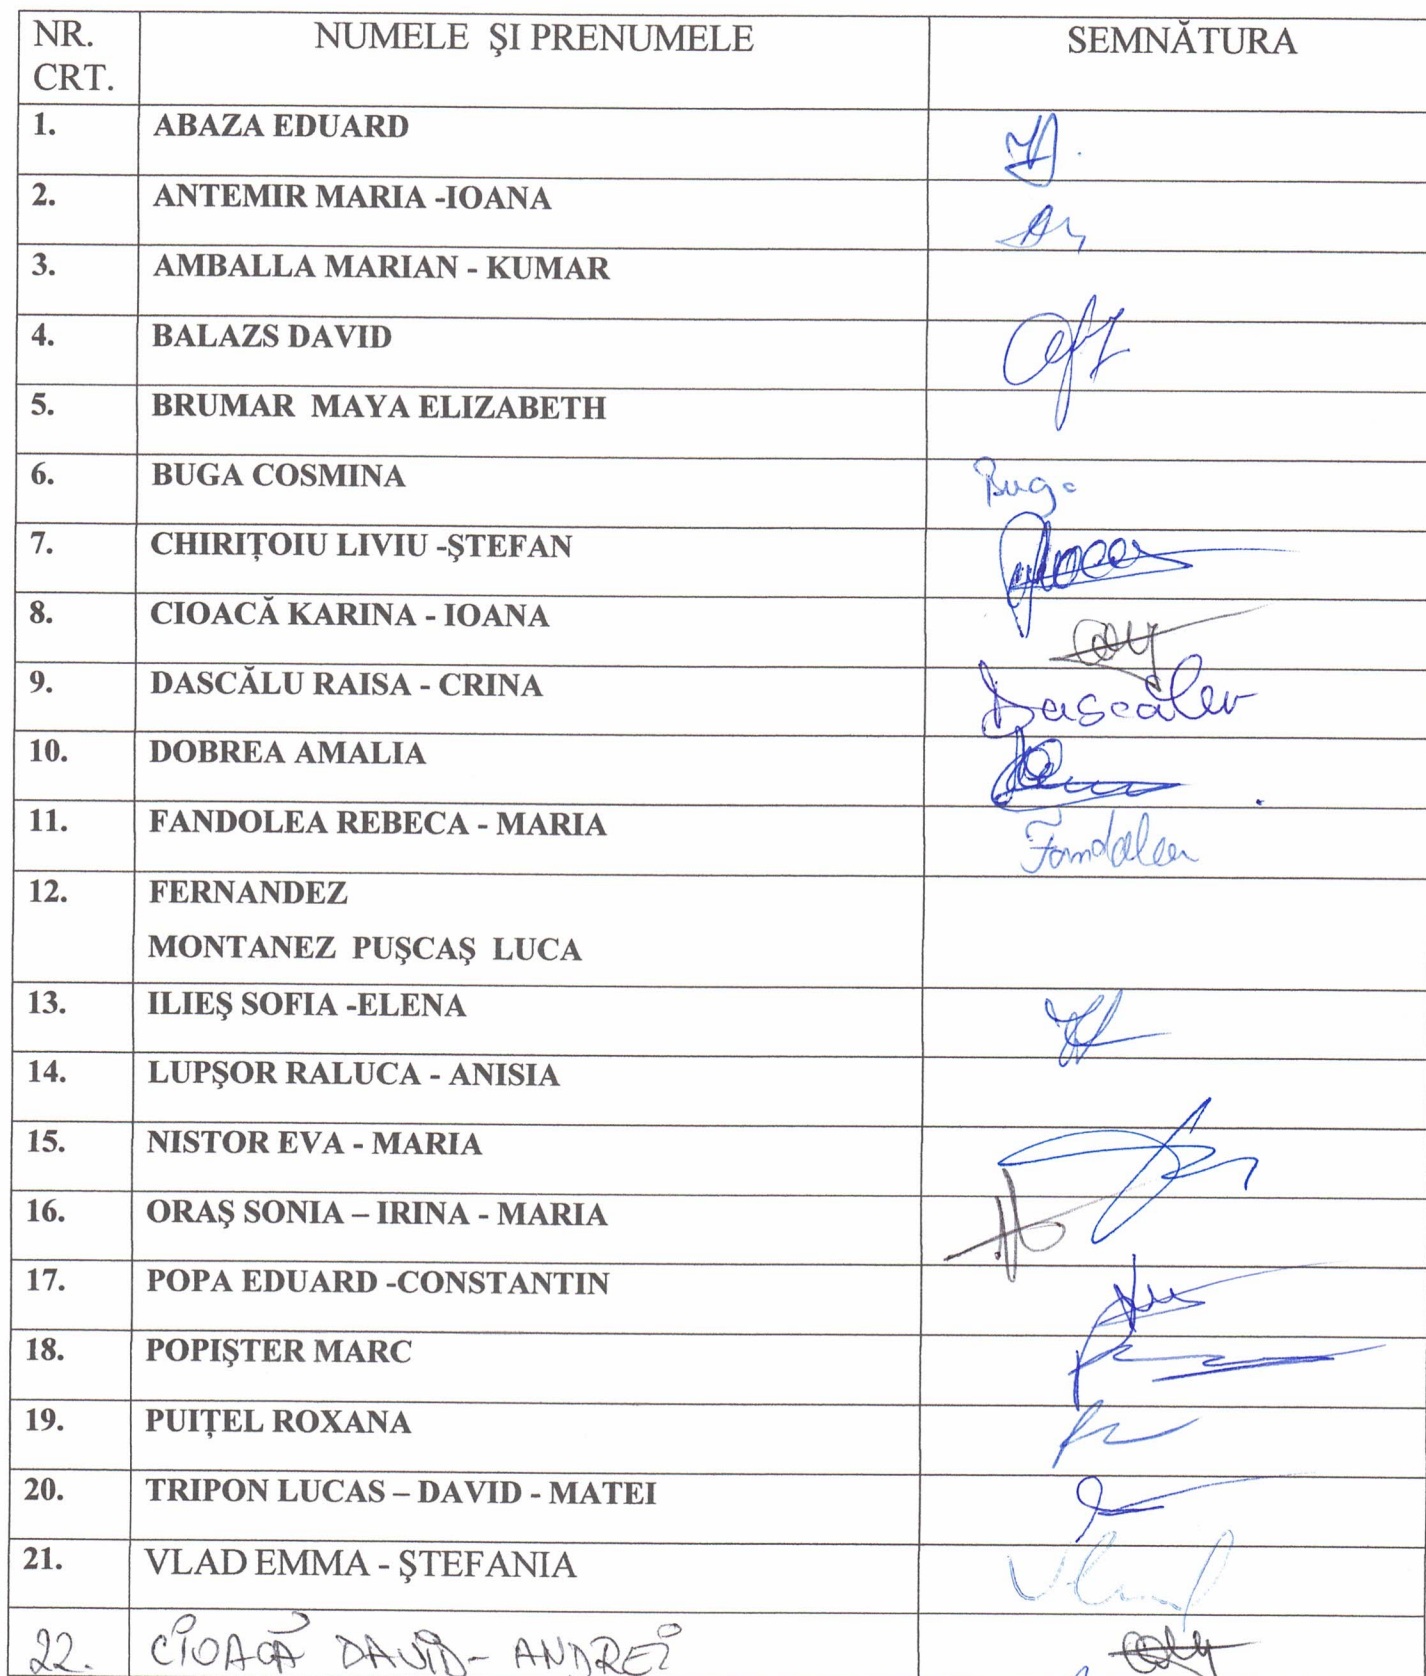 NR. NUMELE ŞI PRENUMELE SEMNĂTURA
CRT.
1. ABAZA EDUARD
2. ANTEMIR MARIA -IOANA
3. AMBALLA MARIAN - KUMAR
4. BALAZS DAVID
5. BRUMAR MAYA ELIZABETH
6. BUGA COSMINA Buga
7. CHIRIȚOIU LIVIU -ŞTEFAN
8. CIOACĂ KARINA - IOANA
9. DASCĂLU RAISA - CRINA Dascălu
10. DOBREA AMALIA
11. FANDOLEA REBECA - MARIA Fandolea
12. FERNANDEZ
MONTANEZ PUŞCAŞ LUCA
13. ILIEŞ SOFIA -ELENA
14. LUPŞOR RALUCA - ANISIA
15. NISTOR EVA - MARIA
16. ORAŞ SONIA – IRINA - MARIA
17. POPA EDUARD -CONSTANTIN
18. POPIŞTER MARC
19. PUIȚEL ROXANA
20. TRIPON LUCAS – DAVID - MATEI
21. VLAD EMMA - ŞTEFANIA Vlad
22. CIOACĂ DAVID - ANDREI